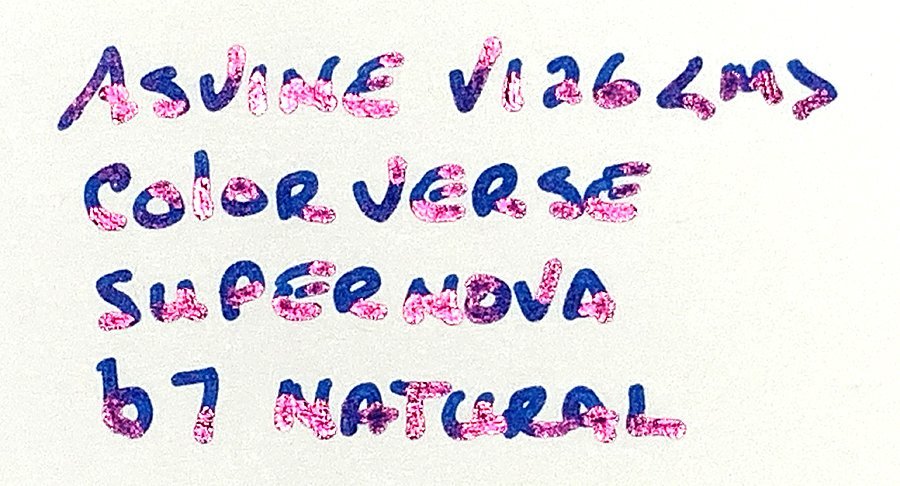 ASVINE V126 <M>
COLORVERSE
SUPERNOVA
67 NATURAL